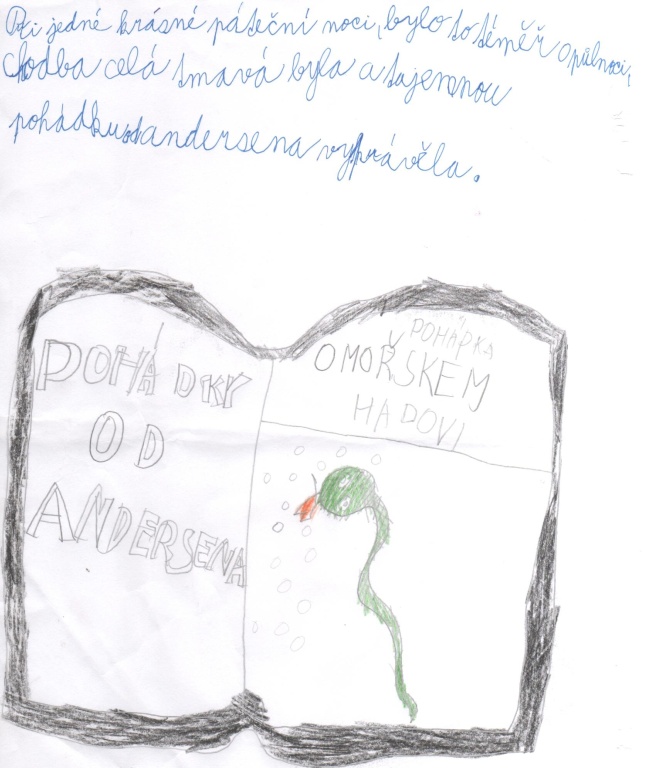 Při jedné krásné páteční noci, bylo to téměř o půlnoci,
chodba celá tmavá byla a tajemnou
pohádku od andersena vyprávěla.
POHÁDKY
OD
ANDERSENA
POHÁDKA
O MOŘSKEM
HADOVI